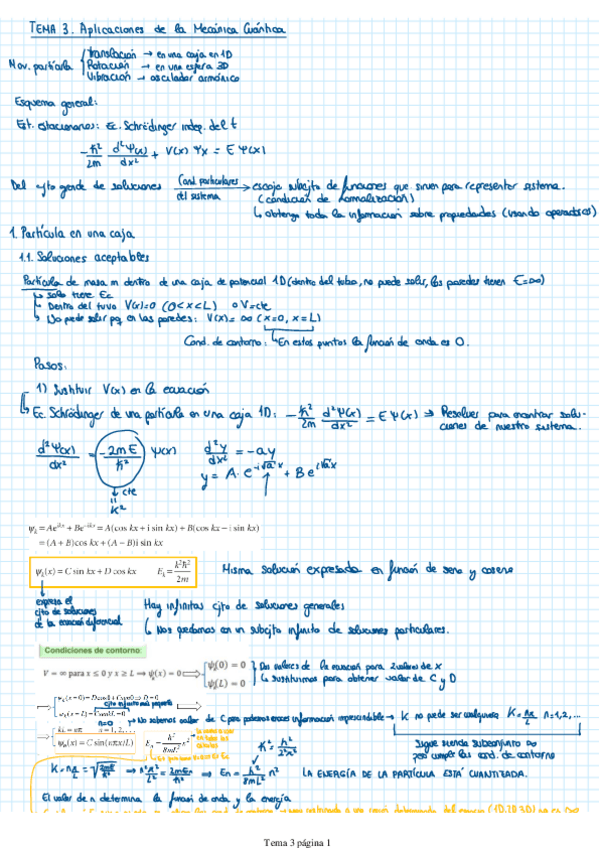 TEMA 3. Aplicaciones de la Mecánica Cuántica
Mov. partícula
Translación → en una caja en 1D
Rotación → en una esfera 3D
Vibración → oscilador armónico
Esquema general:
Est. estacionarios: Ec. Schrödinger indep. del t
-ħ²/2m d²Ψ(x)/dx² + V(x) Ψx = E Ψ(x)
Del cjto grande de soluciones Cond. particulares del sistema → escojo subcjto de funciones que sirven para representar sistema.
(condición de normalización)
↳ obtengo toda la información sobre propiedades (usando operadores)
1. Partícula en una caja
1.1. Soluciones aceptables
Partícula de masa m dentro de una caja de potencial 1D (dentro del tubo, no puede salir, las paredes tienen E=∞)
↳ solo tiene Ec
↳ Dentro del tuvo V(x)=0 (0<x<L) o V=cte
↳ No puede salir pq en las paredes: V(x)=∞ (x=0, x=L)
Cond. de contorno: En estos puntos la función de onda es 0.
Pasos:
1) Sustituir V(x) en la ecuación
↳ Ec. Schrödinger de una partícula en una caja 1D: -ħ²/2m d²Ψ(x)/dx² = E Ψ(x) → Resolver para encontrar soluciones de nuestro sistema.
d²Ψ(x)/dx² = -2mE/ħ² Ψ(x) d²y/dx² = -ay
y = A·e^-i√a x + B e^i√a x
↓ cte
=
K²
ψk = Ae^ikx + Be^-ikx = A(cos kx + i sin kx) + B(cos kx − i sin kx)
= (A + B)cos kx + (A − B)i sin kx
ψk(x) = C sin kx + D cos kx Ek = k²ħ²/2m Misma solución expresada en función de seno y coseno
expresa el cjto de soluciones de la ecuación diferencial
Hay infinitas cjto de soluciones generales
↳ Nos quedamos en un subcjto infinito de soluciones particulares.
Condiciones de contorno:
V = ∞ para x ≤ 0 y x ≥ L ⟹ ψk(x) = 0 ⟹ ψk(0) = 0
ψk(L) = 0
Dos valores de la ecuación para 2 valores de x
↳ sustituimos para obtener valor de C y D
cjto infinito más pequeño
n=0
→ No sabemos valor de C
K no puede ser cualquiera K = nπ/L n=1,2,...
ψn(x) = C sin(nπx/L) En = h²/8mL² n²
Sigue siendo subconjunto ∞ para cumplir las cond. de contorno
K = nπ/L = √2mE/ħ² ⇒ n²π²/L² = 2mEn/ħ² ⇒ En = h²/8mL² n² LA ENERGÍA DE LA PARTÍCULA ESTÁ CUANTIZADA.
El valor de n determina la función de onda y la energía
Tema 3 página 1